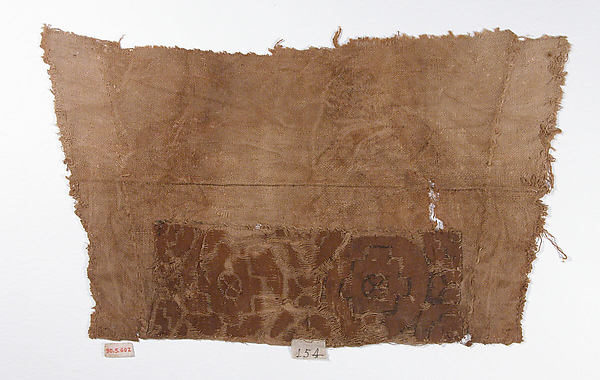 90.5.602
154